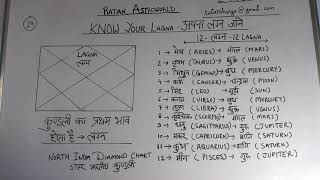 RATAN ASTROWORLD
KNOW YOUR LAGNA - अपना लग्न जाने
12 - लग्न - 12 LAGNA
LAGNA
लग्न
1 → मेष (ARIES) → मंगल (MARS)
2 → वृषभ (TAURUS) → शुक्र (VENUS)
3 → मिथुन (GEMINI) → बुध (MERCURY)
4 → कर्क (CANCER) → चन्द्र (MOON)
5 → सिंह (LEO) → सूर्य (SUN)
6 → कन्या (VIRGO) → बुध (MERCURY)
7 → तुला (LIBRA) → शुक्र (VENUS)
8 → वृश्चिक (SCORPIO) → मंगल (MARS)
9 → धनु (SAGITTARIUS) → गुरु (JUPITER)
10 → मकर (CAPRICORN) → शनि (SATURN)
11 → कुंभ (AQUARIUS) → शनि (SATURN)
12 → मीन (PISCES) → गुरु (JUPITER)
कुण्डली का प्रथम भाव
होता है → लग्न
NORTH INDIA DIAMOND CHART
उत्तर भारतीय कुण्डली